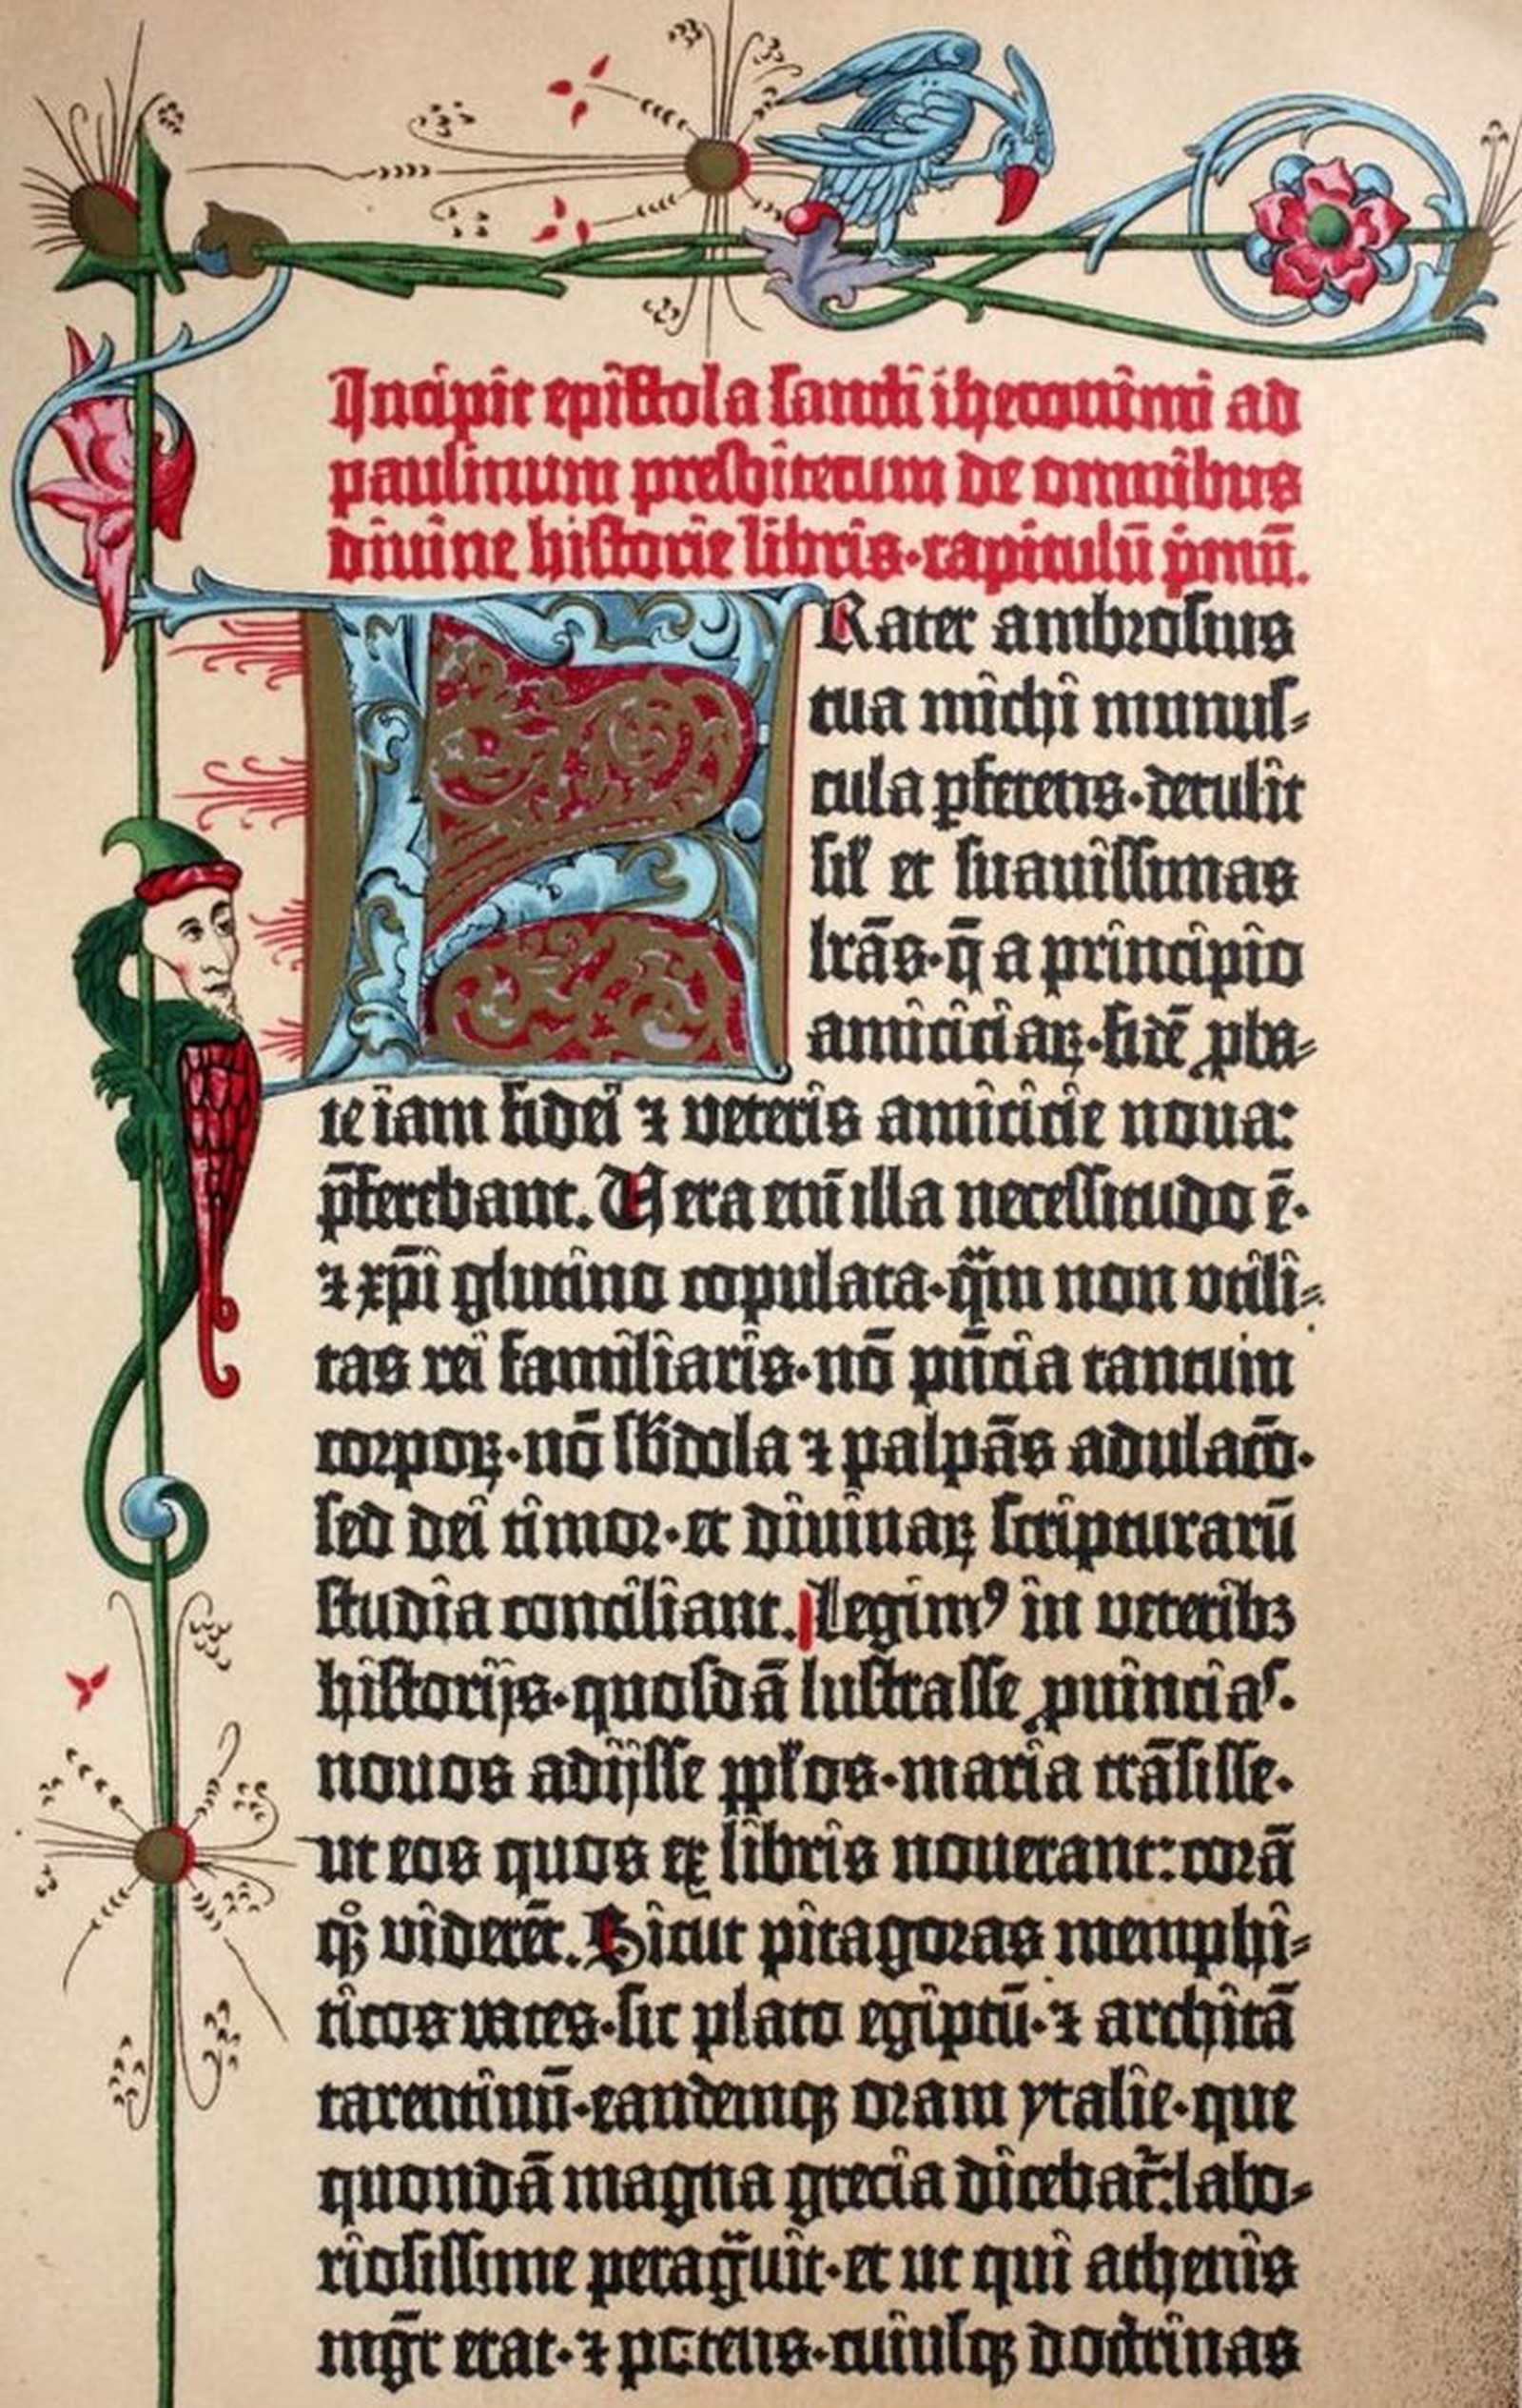 Incipit epistola sancti iheronimi ad
paulinum presbiterum de omnibus
divine historie libris·capitulū p̄mū.
FRater ambrosius
tua michi munus⸗
cula p̲ferens·detulit
sil̄ et suavissimas
lr̄as·q̄ a principio
amiciciaꝝ·fidē ꝓba⸗
te iam fidei ⁊ veteris amicicie nova:
p̄ferebant. Vera eni̅ illa necessitudo ē·
⁊ xp̄i glutino copulata·qᷓm non utili⸗
tas rei familiaris·nō pn̄cia tantum
corpoꝝ·nō sb̄dola ⁊ palpās adulac̄o·
sed dei timor·et divinaꝝ scripturarū
studia conciliant. Legimꝰ in veteribꝫ
historijs·quosdā lustrasse ꝓuincias·
novos adijsse ppl̄os·maria trāsisse·
ut eos quos ex libris noverant: corā
qꝫ viderēt. Sicut pitagoras memphi⸗
ticos vates·sic plato egiptū·⁊ architā
tarentinū·eandemqꝫ oram ytalie·que
quondā magna grecia dicebat᷑: labo⸗
riosissime peragᷓvit·et ut qui athenis
mgr̄ erat·⁊ potens·cuiusqꝫ doctrinas